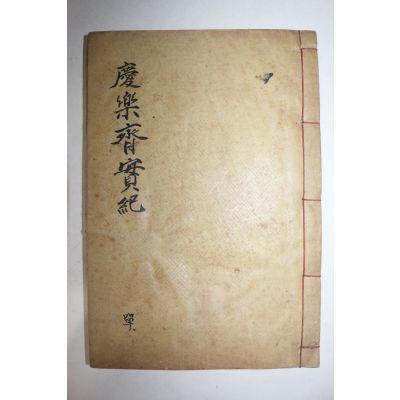 慶樂齋實紀
單